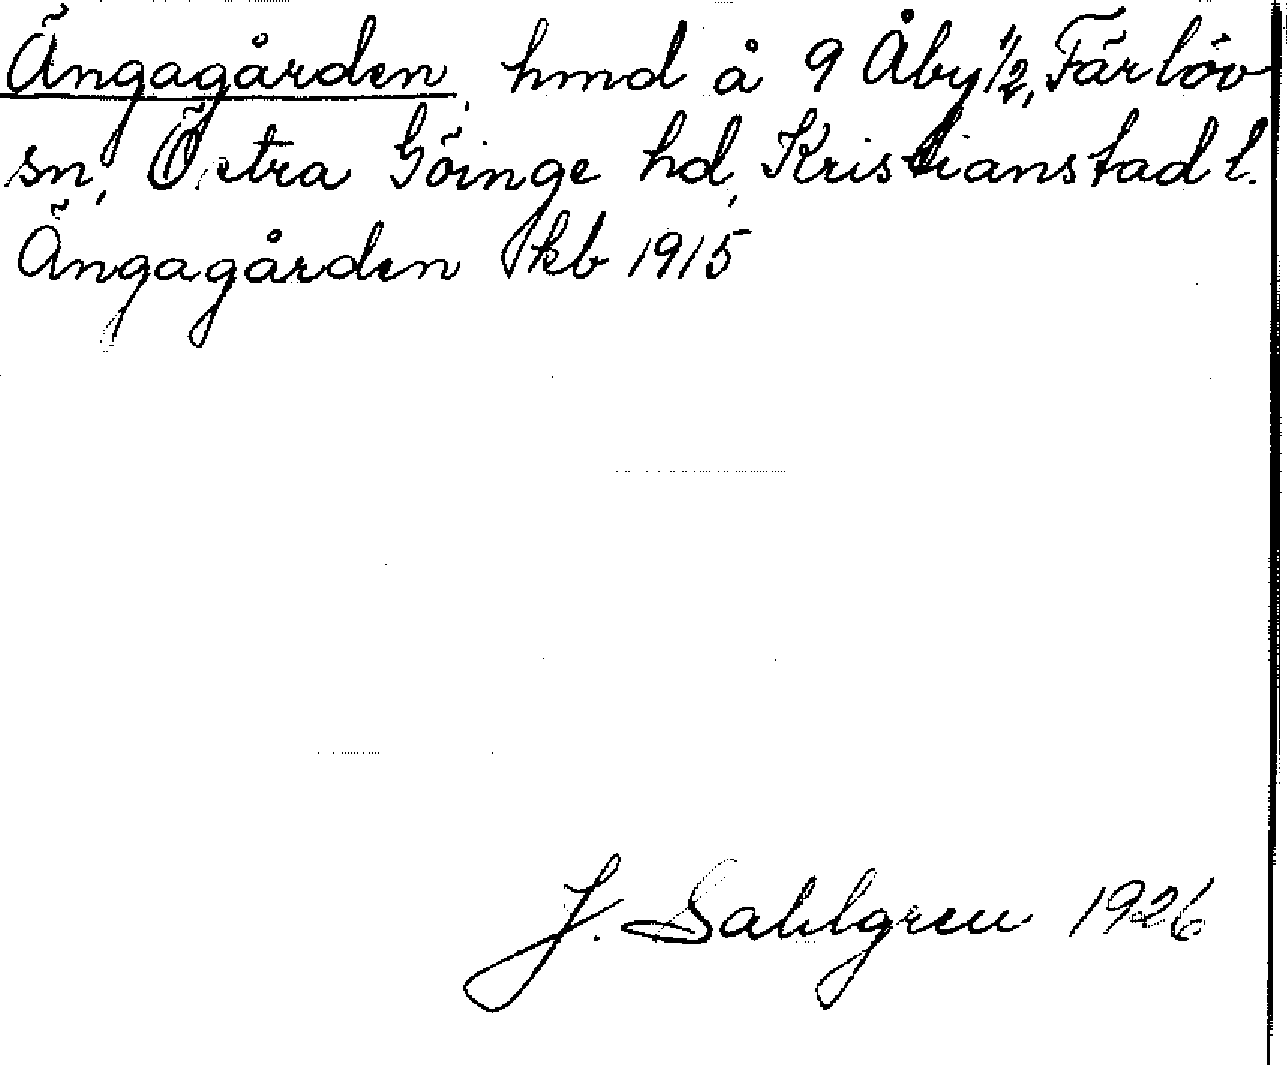 Ängagården, hmd å 9 Åby 1/2, Färlöv
sn, Östra Göinge hd, Kristianstad l.
Ängagården kb 1915
J. Sahlgren 1926